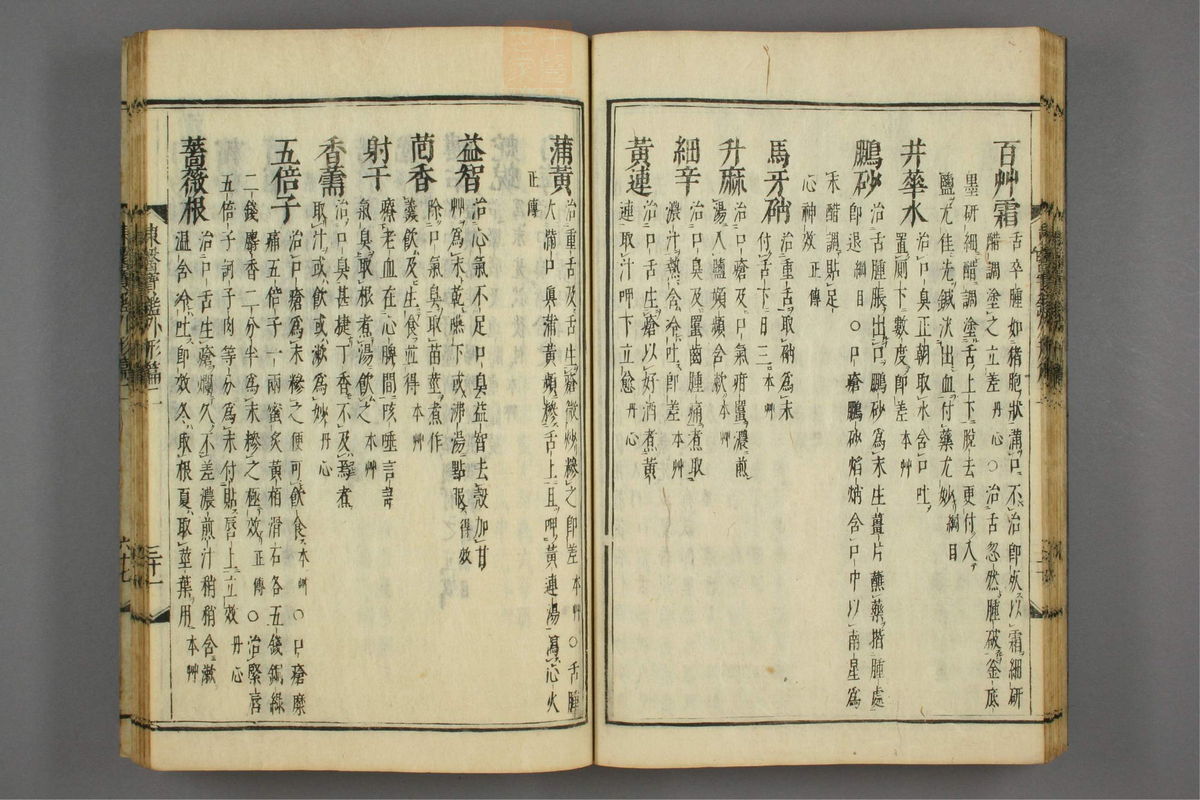 百艸霜
舌卒腫如猪胞狀滿口不治卽死以霜細研
醋調塗之立差丹心○治舌忽然腫破釜底
墨研細醋調塗舌上下脫去更付入
鹽尤佳先鍼決出血付藥尤妙綱目
井華水
治口臭正朝取水含口吐
置厠下數度卽差本艸
鵬砂
治舌腫脹出口鵬砂爲末生薑片蘸藥揩腫處
卽退綱目○口瘡鵬砂焰焇含口中以南星爲
末醋調貼足
心神效正傳
馬牙硝
治重舌取硝爲末
付舌下日三本艸
升麻
治口瘡及口氣疳䘌濃煎
湯入鹽頻頻含漱本艸
細辛
治口臭及䘌齒腫痛煮取
濃汁熱含冷吐卽差本艸
黃連
治口舌生瘡以好酒煮黃
連取汁呷下立愈丹心
蒲黃
治重舌及舌生瘡微炒糝之卽差本艸○舌腫
大滿口眞蒲黃頻糝舌上且呷黃連湯瀉心火
正傳
益智
治心氣不足口臭益智去殼加甘
艸爲末乾嚥下或沸湯點服得效
茴香
除口氣臭取苗莖煮作
羹飮及生食並得本艸
射干
療老血在心脾間咳唾言語
氣臭取根煮湯飮之本艸
香薷
治口臭甚捷丁香不及焉煮
取汁或飮或漱爲妙丹心
五倍子
治口瘡爲末糝之便可飮食本艸○口瘡糜
痛五倍子一兩蜜炙黃栢滑石各五錢銅綠
二錢麝香二分半爲末糝之極效正傳○治緊唇
五倍子訶子肉等分爲末付貼唇上立效丹心
薔薇根
治口舌生瘡爛久不差濃煎汁稍稍含漱
温含冷吐卽效冬取根夏取莖葉用本艸